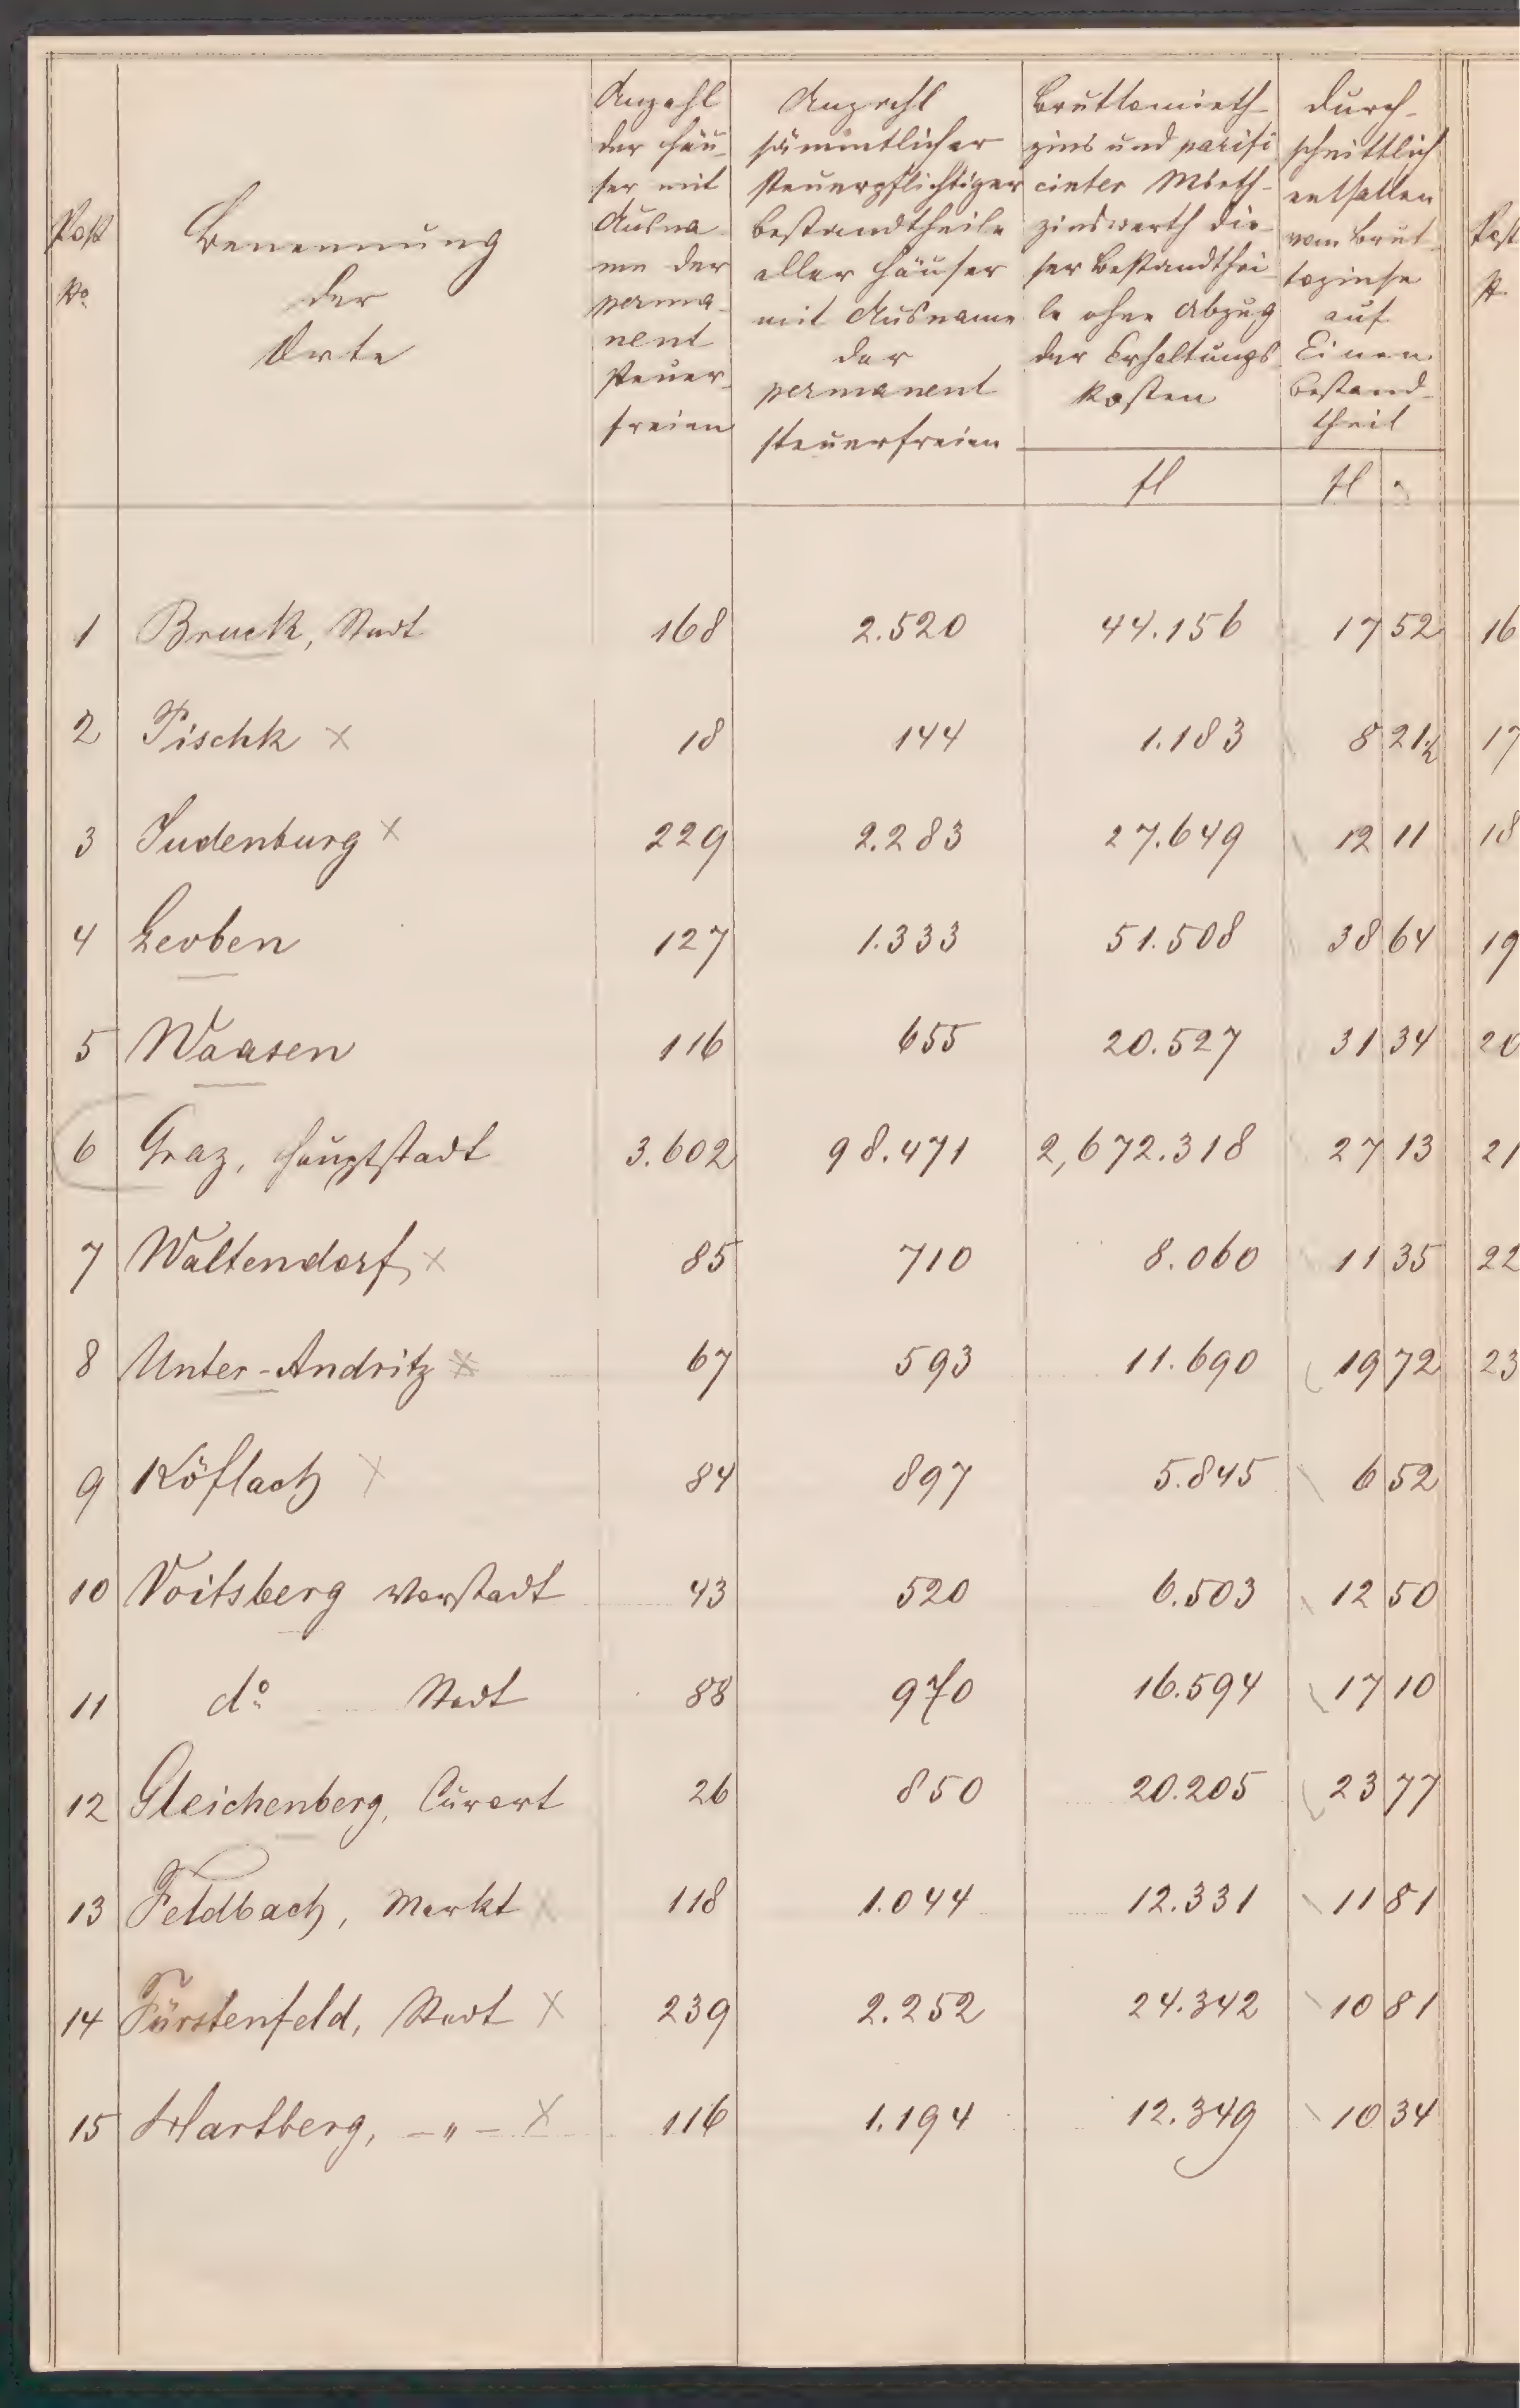 Post
No
Benennung
der
Orte
Anzahl
der Häu-
ser mit
Ausna-
me der
perma-
nent
steuer-
freien
Anzahl
sämmtlicher
steuerpflichtiger
Bestandtheile
aller Häuser
mit Ausname
der
permanent
steuerfreien
Bruttomieth-
zins und parifi-
cirter Mieth-
zinswerth die-
ser Bestandthei-
le ohne Abzug
der Erhaltungs-
kosten
fl
Durch-
schnittlich
entfallen
vom Brut-
tozinse
auf
Einen
Bestand-
theil
fl
Post
1 Bruck, Stadt 168 2.520 44.156 17 52 16
2 Pischk x 18 144 1.183 8 21½ 17
3 Judenburg x 229 2.283 27.649 12 11 18
4 Leoben 127 1.333 51.508 38 64 19
5 Waasen 116 655 20.527 31 34 20
6 Graz, Hauptstadt 3.602 98.471 2,672.318 27 13 21
7 Waltendorf x 85 710 8.060 11 35 22
8 Unter-Andritz x 67 593 11.690 19 72 23
9 Köflach x 84 897 5.845 6 52
10 Voitsberg Vorstadt 43 520 6.503 12 50
11 do Stadt 88 970 16.594 17 10
12 Gleichenberg, Curort 26 850 20.205 23 77
13 Feldbach, Markt x 118 1.044 12.331 11 81
14 Fürstenfeld, Stadt x 239 2.252 24.342 10 81
15 Hartberg, -"- x 116 1.194 12.349 10 34